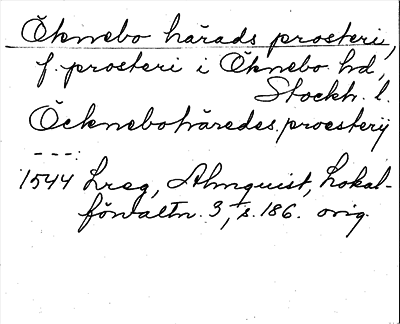 Öknebo härads prosteri,
f. prosteri i Öknebo hd,
Stockh. l.
Öcknebohäredes proesterij
---:
1544 Lreg, Almquist, Lokal-
förvaltn. 3, s. 186. orig.